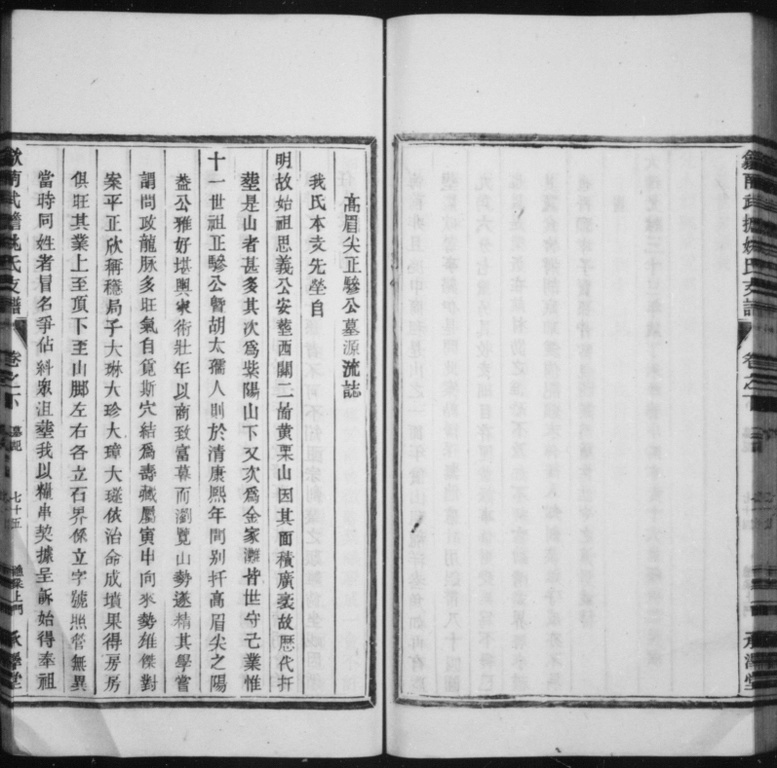 高眉尖正驂公墓源流誌
我氏本支先塋自
明故始祖思義公安塟西關二啚黄栗山因其面積廣袤故歷代扦
塟是山者甚多其次爲紫陽山下又次爲金家灘皆世守己業惟
十一世祖正驂公暨胡太孺人則於清康熙年間别扦高眉尖之陽
益公雅好堪輿家術壯年以商致富暮而瀏覽山勢遂精其學嘗
謂問政龍脉多旺氣自覓斯穴結爲壽藏屬寅申向來勢雄傑對
案平正欣稱穩局子大琳大珍大璋大瑳依治命成墳果得房房
俱旺其業上至頂下至山脚左右各立石界係立字號照管無異
當時同姓者冒名爭佔糾衆沮塟我以糧串契據呈訴始得奉祖
氏支譜
卷之下
墓記
七十五
承澤堂